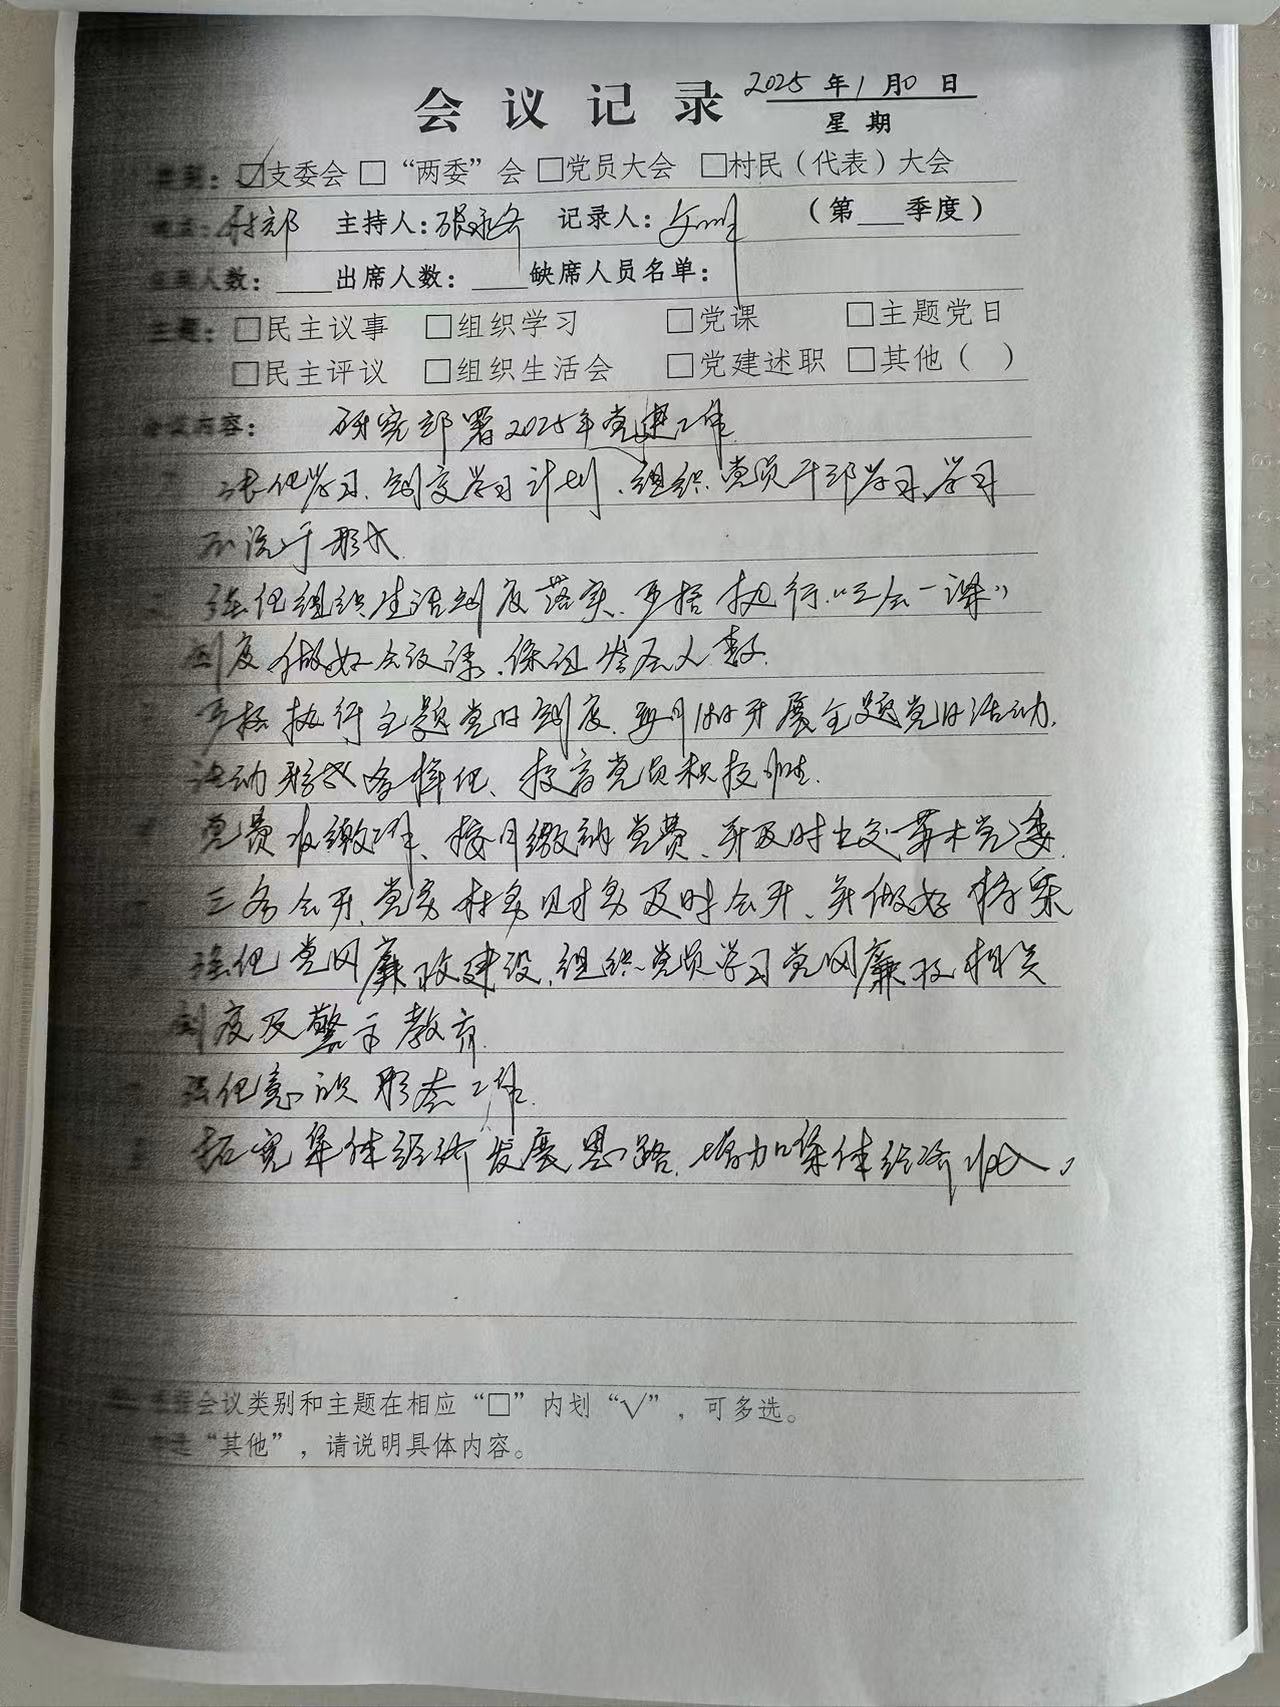 会议记录 2025年1月10日
星期
类别：☑支委会 □“两委”会 □党员大会 □村民（代表）大会
地点：村部 主持人：张 记录人： （第___季度）
人数：____出席人数：____缺席人员名单：
主题：□民主议事 □组织学习 □党课 □主题党日
□民主评议 □组织生活会 □党建述职 □其他（ ）
会议内容： 研究部署2025年党建工作
强化学习、制定学习计划、组织党员干部学习、学习
不流于形式
强化组织生活制度落实、严格执行“三会一课”
制度做好会议记录、保证参会人数.
严格执行主题党日制度、每月18日开展主题党日活动.
活动形式多样化、提高党员积极性.
党费收缴工作、按月缴纳党费、并及时上交苇木党委.
三务公开、党务村务财务及时公开、并做好档案
强化党风廉政建设、组织党员学习党风廉政相关
制度及警示教育.
强化意识形态工作.
拓宽集体经济发展思路、增加集体经济收入。
会议类别和主题在相应“□”内划“√”，可多选。
“其他”，请说明具体内容。